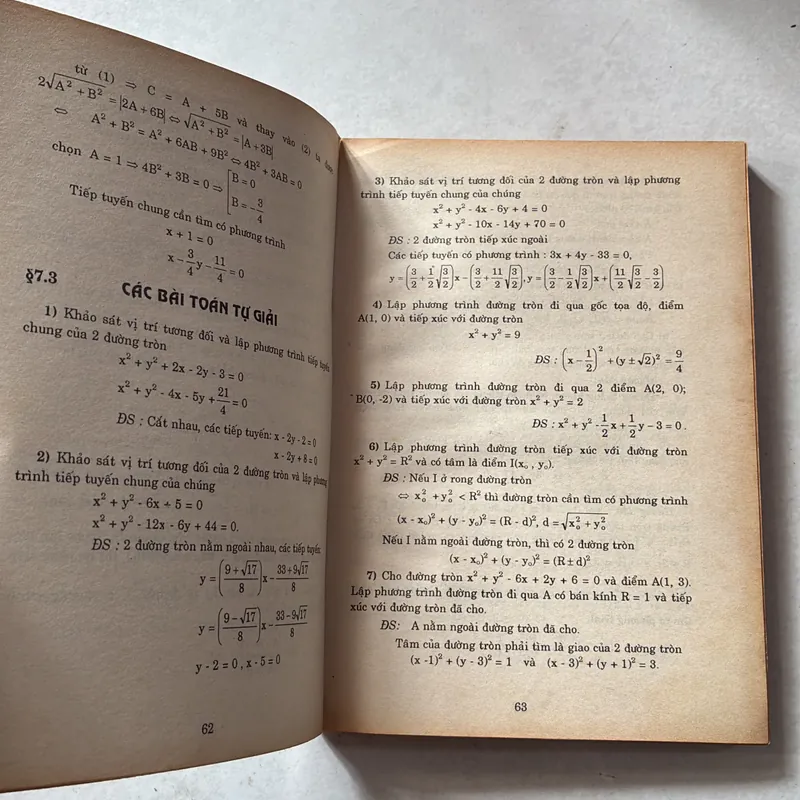 từ (1) ⇒ C = A + 5B và thay vào (2) ta được
2√(A² + B²) = |2A + 6B| ⇔ √(A² + B²) = |A + 3B|
⇔ A² + B² = A² + 6AB + 9B² ⇔ 4B² + 3AB = 0
chọn A = 1 ⇒ 4B² + 3B = 0 ⇒ [B = 0
B = -3/4
Tiếp tuyến chung cần tìm có phương trình
x + 1 = 0
x - 3/4 y - 11/4 = 0
§7.3 CÁC BÀI TOÁN TỰ GIẢI
1) Khảo sát vị trí tương đối và lập phương trình tiếp tuyến
chung của 2 đường tròn
x² + y² + 2x - 2y - 3 = 0
x² + y² - 4x - 5y + 21/4 = 0
ĐS : Cắt nhau, các tiếp tuyến: x - 2y - 2 = 0
x - 2y + 8 = 0
2) Khảo sát vị trí tương đối của 2 đường tròn và lập phương
trình tiếp tuyến chung của chúng
x² + y² - 6x + 5 = 0
x² + y² - 12x - 6y + 44 = 0.
ĐS : 2 đường tròn nằm ngoài nhau, các tiếp tuyến:
y = ((9 + √17)/8)x - (33 + 9√17)/8
y = ((9 - √17)/8)x - (33 - 9√17)/8
y - 2 = 0 , x - 5 = 0
62
3) Khảo sát vị trí tương đối của 2 đường tròn và lập phương
trình tiếp tuyến chung của chúng
x² + y² - 4x - 6y + 4 = 0
x² + y² - 10x - 14y + 70 = 0
ĐS : 2 đường tròn tiếp xúc ngoài
Các tiếp tuyến có phương trình : 3x + 4y - 33 = 0,
y = (3/2 + 1/2 √(3/2))x - (3/2 + 11/2 √(3/2)), y = (3/2 - 1/2 √(3/2))x + (11/2 √(3/2) - 3/2)
4) Lập phương trình đường tròn đi qua gốc tọa độ, điểm
A(1, 0) và tiếp xúc với đường tròn
x² + y² = 9
ĐS : (x - 1/2)² + (y ± √2)² = 9/4
5) Lập phương trình đường tròn đi qua 2 điểm A(2, 0);
B(0, -2) và tiếp xúc với đường tròn x² + y² = 2
ĐS : x² + y² - 1/2 x + 1/2 y - 3 = 0 .
6) Lập phương trình đường tròn tiếp xúc với đường tròn
x² + y² = R² và có tâm là điểm I(x₀ , y₀).
ĐS : Nếu I ở rong đường tròn
⇔ x₀² + y₀² < R² thì đường tròn cần tìm có phương trình
(x - x₀)² + (y - y₀)² = (R - d)², d = √(x₀² + y₀²)
Nếu I nằm ngoài đường tròn, thì có 2 đường tròn
(x - x₀)² + (y - y₀)² = (R ± d)²
7) Cho đường tròn x² + y² - 6x + 2y + 6 = 0 và điểm A(1, 3).
Lập phương trình đường tròn đi qua A có bán kính R = 1 và tiếp
xúc với đường tròn đã cho.
ĐS: A nằm ngoài đường tròn đã cho.
Tâm của đường tròn phải tìm là giao của 2 đường tròn
(x -1)² + (y - 3)² = 1 và (x - 3)² + (y + 1)² = 3.
63